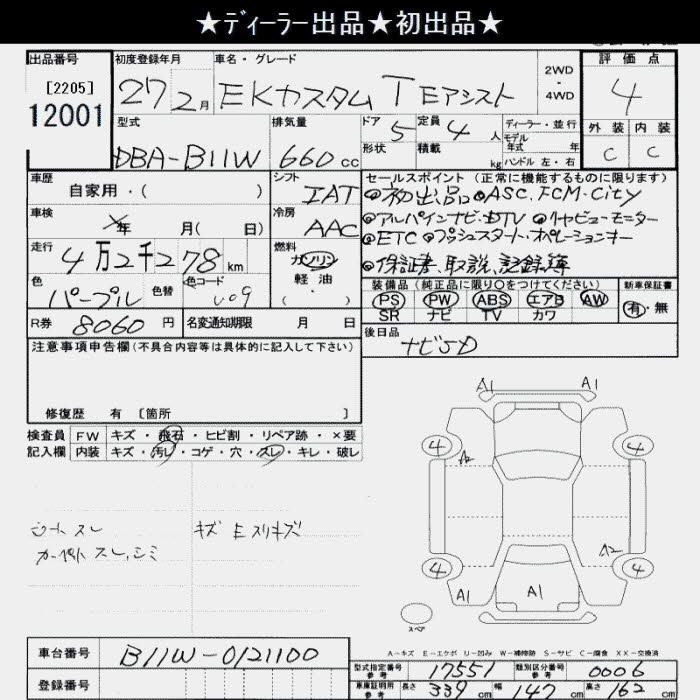 ★ディーラー出品★初出品★
出品番号
[2205]
12001
初度登録年月
27 2 月
車名・グレード
EKカスタム T Eアシスト
2WD
・
4WD
評価点
4
外装 内装
C C
型式
DBA-B11W
排気量
660 cc
ドア 5
定員 4 人
形状
積載 kg
ディーラー・並行
モデル
年式 年
ハンドル 左・右
車歴
自家用・( )
シフト
IAT
車検
年 月( 日)
冷房
AAC
走行
4万2千278 km
燃料
ガソリン
軽油
( ・ )
色
パープル
色替
色コード
U09
R券 8060 円
名変通知期限 月 日
セールスポイント(正常に機能するものに限ります)
初出品 ASC.FCM-City
アルパインナビ・DTV リヤビューモニター
ETC プッシュスタート・オペレーションキー
保証書、取説、記録簿
装備品(純正品に限り○をつけてください)
PS PW ABS エアB AW
SR ナビ TV カワ
新車保証書
有・無
後日品
ナビSD
注意事項申告欄(不具合内容等は具体的に記入して下さい)
修復歴 有 [箇所 ]
検査員 FW キズ・飛石・ヒビ割・リペア跡・×要
記入欄 内装 キズ・汚レ・コゲ・穴・スレ・キレ・破レ
シートスレ
カーペットスレ、シミ
キズ E スリキズ
A1 A1
4 4
A2
A2
4 4
A1 A1
スペア
A-キズ E-エクボ U-凹み W-補修跡 S-サビ C-腐食 XX-交換済
車台番号 B11W-0121100
登録番号
型式指定番号 参考 17551
類別区分番号 参考 0006
車庫証明用 参考 長さ 339 cm 幅 147 cm 高さ 162 cm